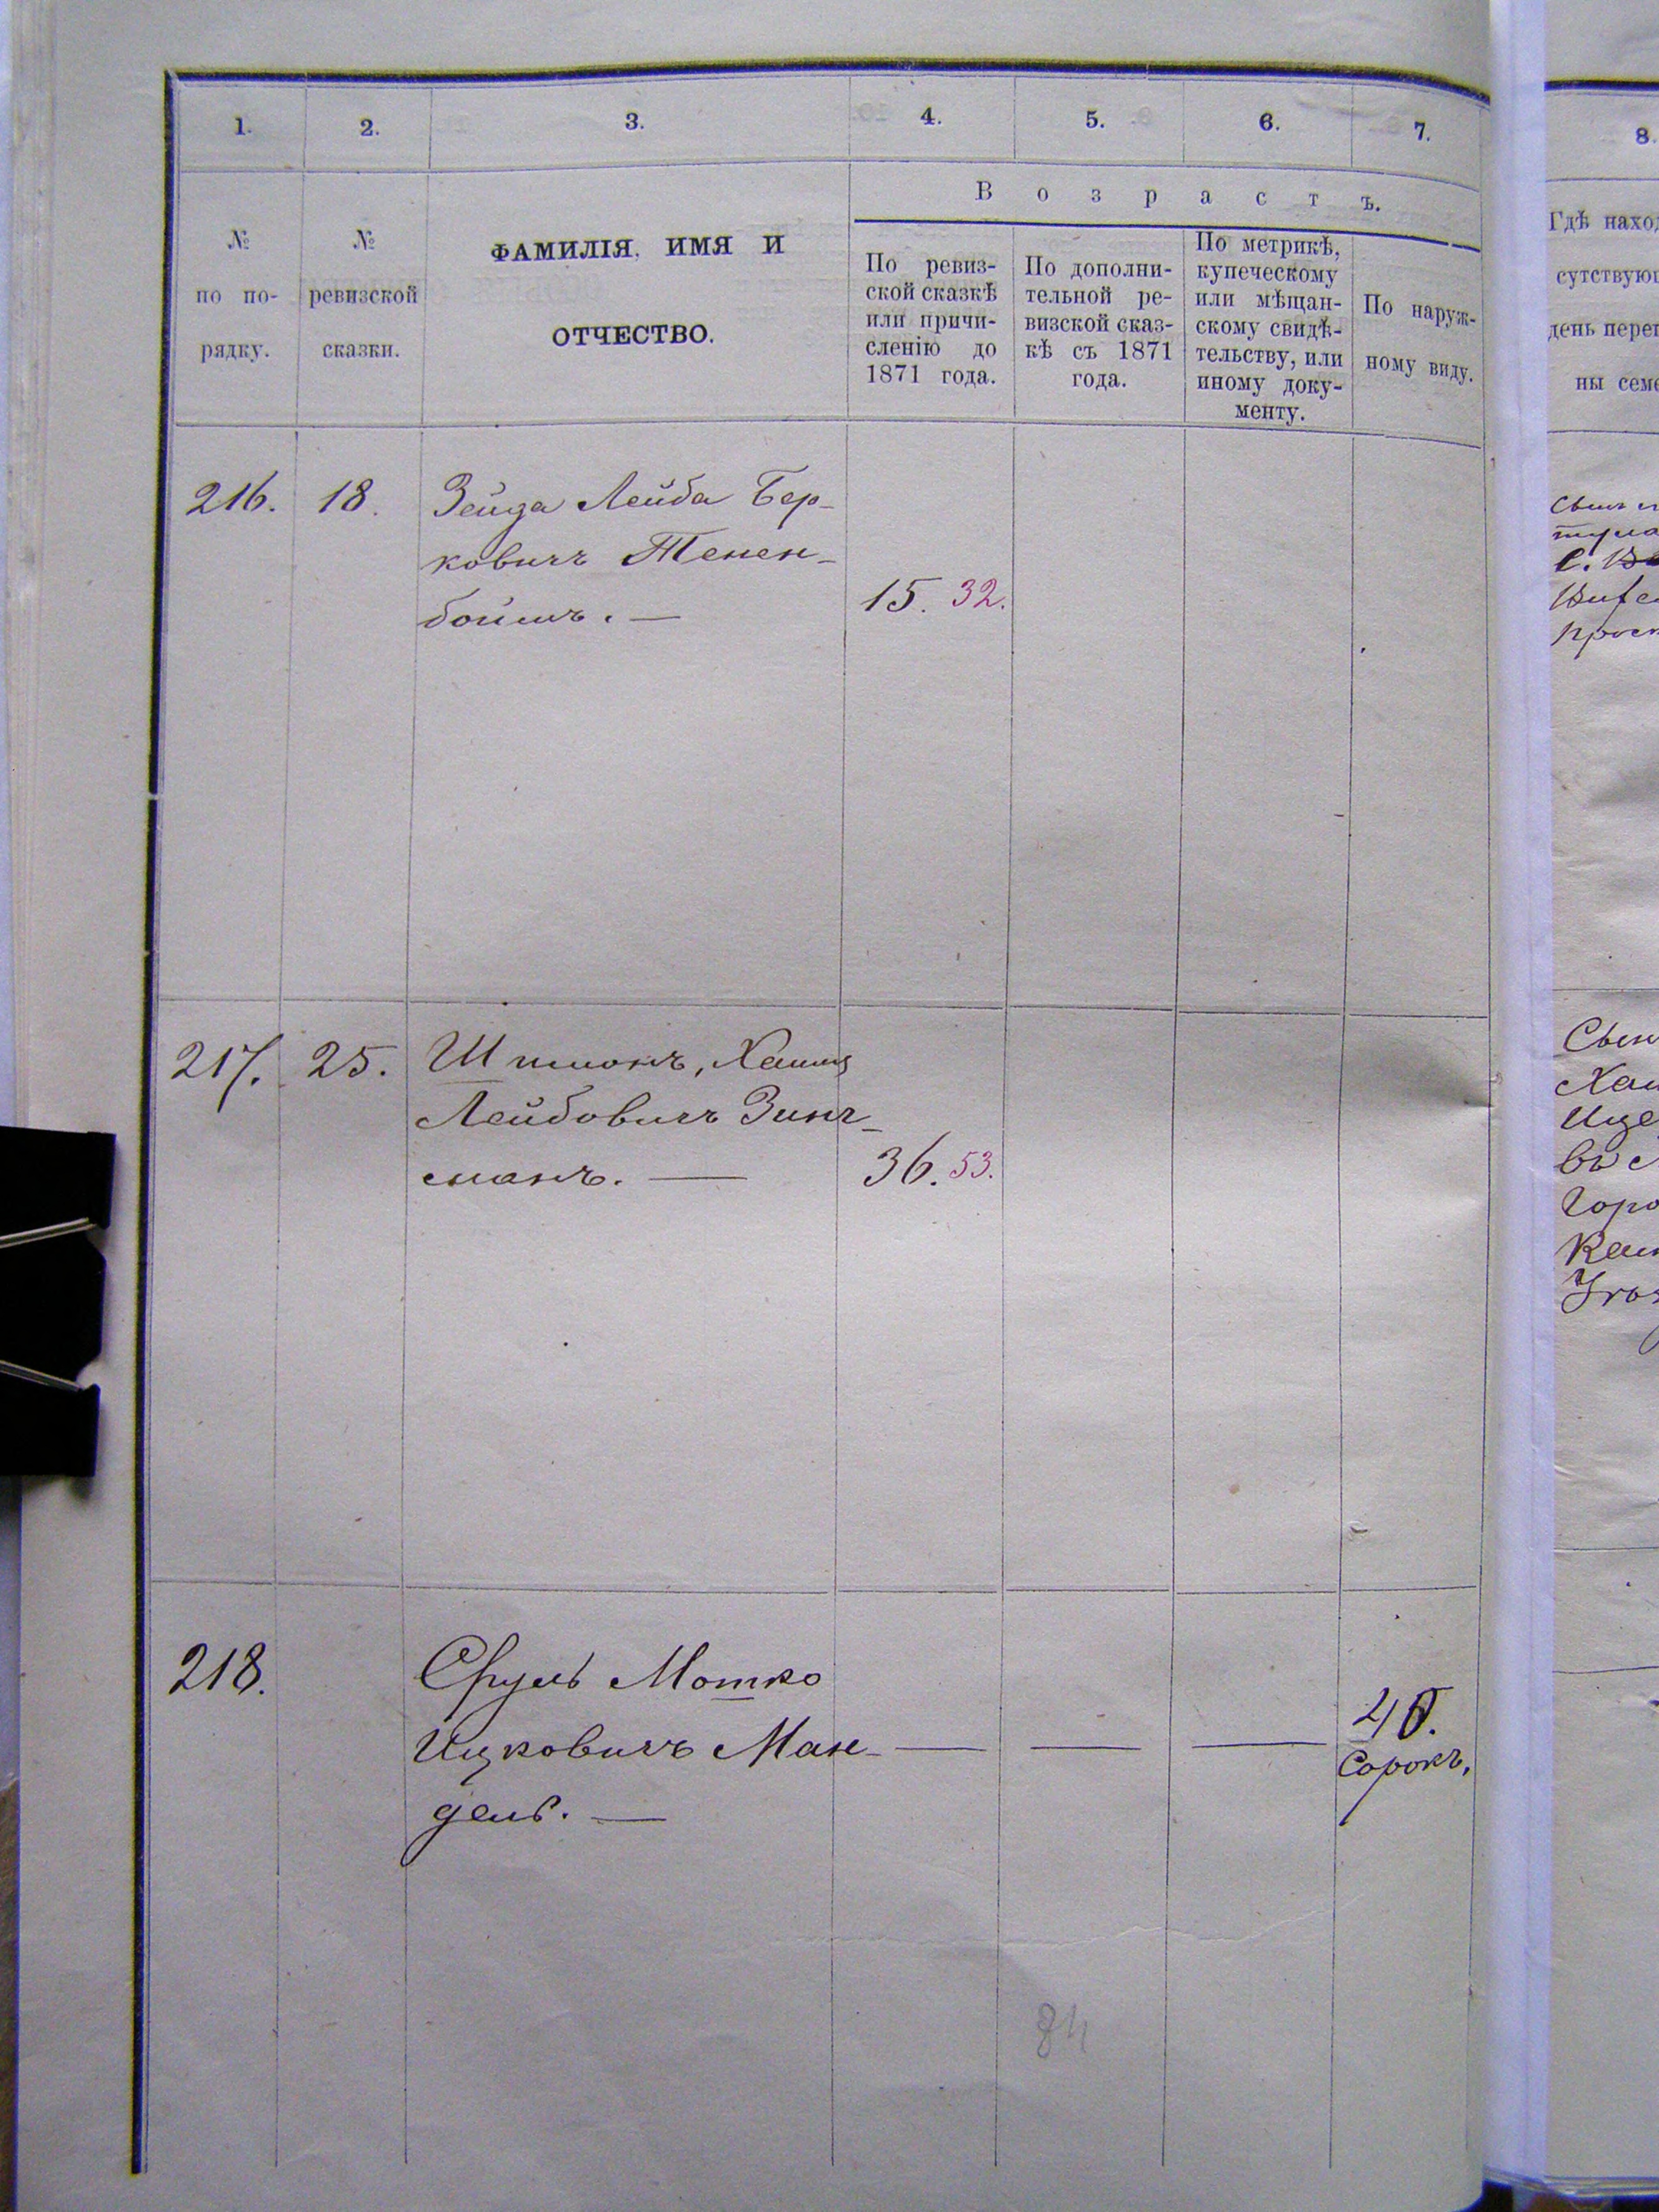 1. 2. 3. 4. 5. 6. 7.
№ по порядку.
№ ревизской сказки.
ФАМИЛІЯ, ИМЯ И
ОТЧЕСТВО.
В о з р а с т ъ.
По ревиз-
ской сказкѣ
или причи-
сленію до
1871 года.
По дополни-
тельной ре-
визской сказ-
кѣ съ 1871
года.
По метрикѣ,
купеческому
или мѣщан-
скому свидѣ-
тельству, или
иному доку-
менту.
По наруж-
ному виду.
216. 18. Зейда Лейба Бер-
ковичъ Тенен-
боймъ. — 15. 32.
217. 25. Шимонъ, Хаимъ
Лейбовичъ Зинг-
манъ. — 36. 53.
218. Сруль Мотко
Ицковичъ Ман- — — — 40.
дель. — Сорокъ,
84
8.
Гдѣ наход
сутствующ
день переп
ны семе